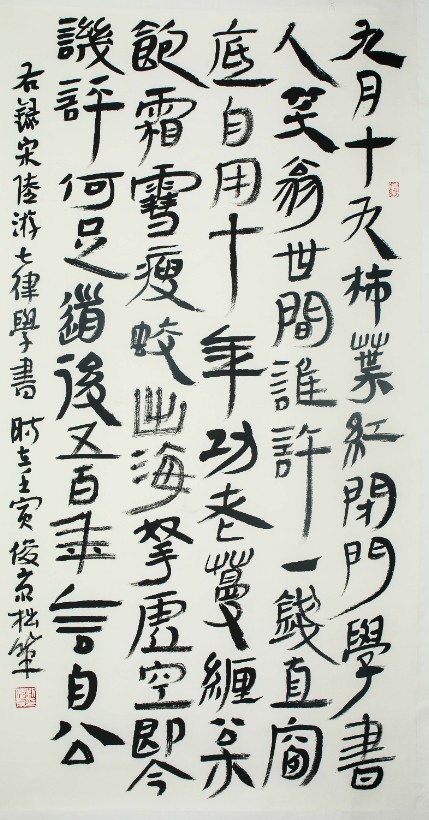 九月十九柿葉紅閉門學書
人笑翁世間誰許一錢直窗
底自用十年功老蔓纏枩
飽霜雪瘦蛟出海拏虛空即今
譏評何足道後五百年言自公
右錄宋陸游七律學書 时在壬寅俊京拙筆